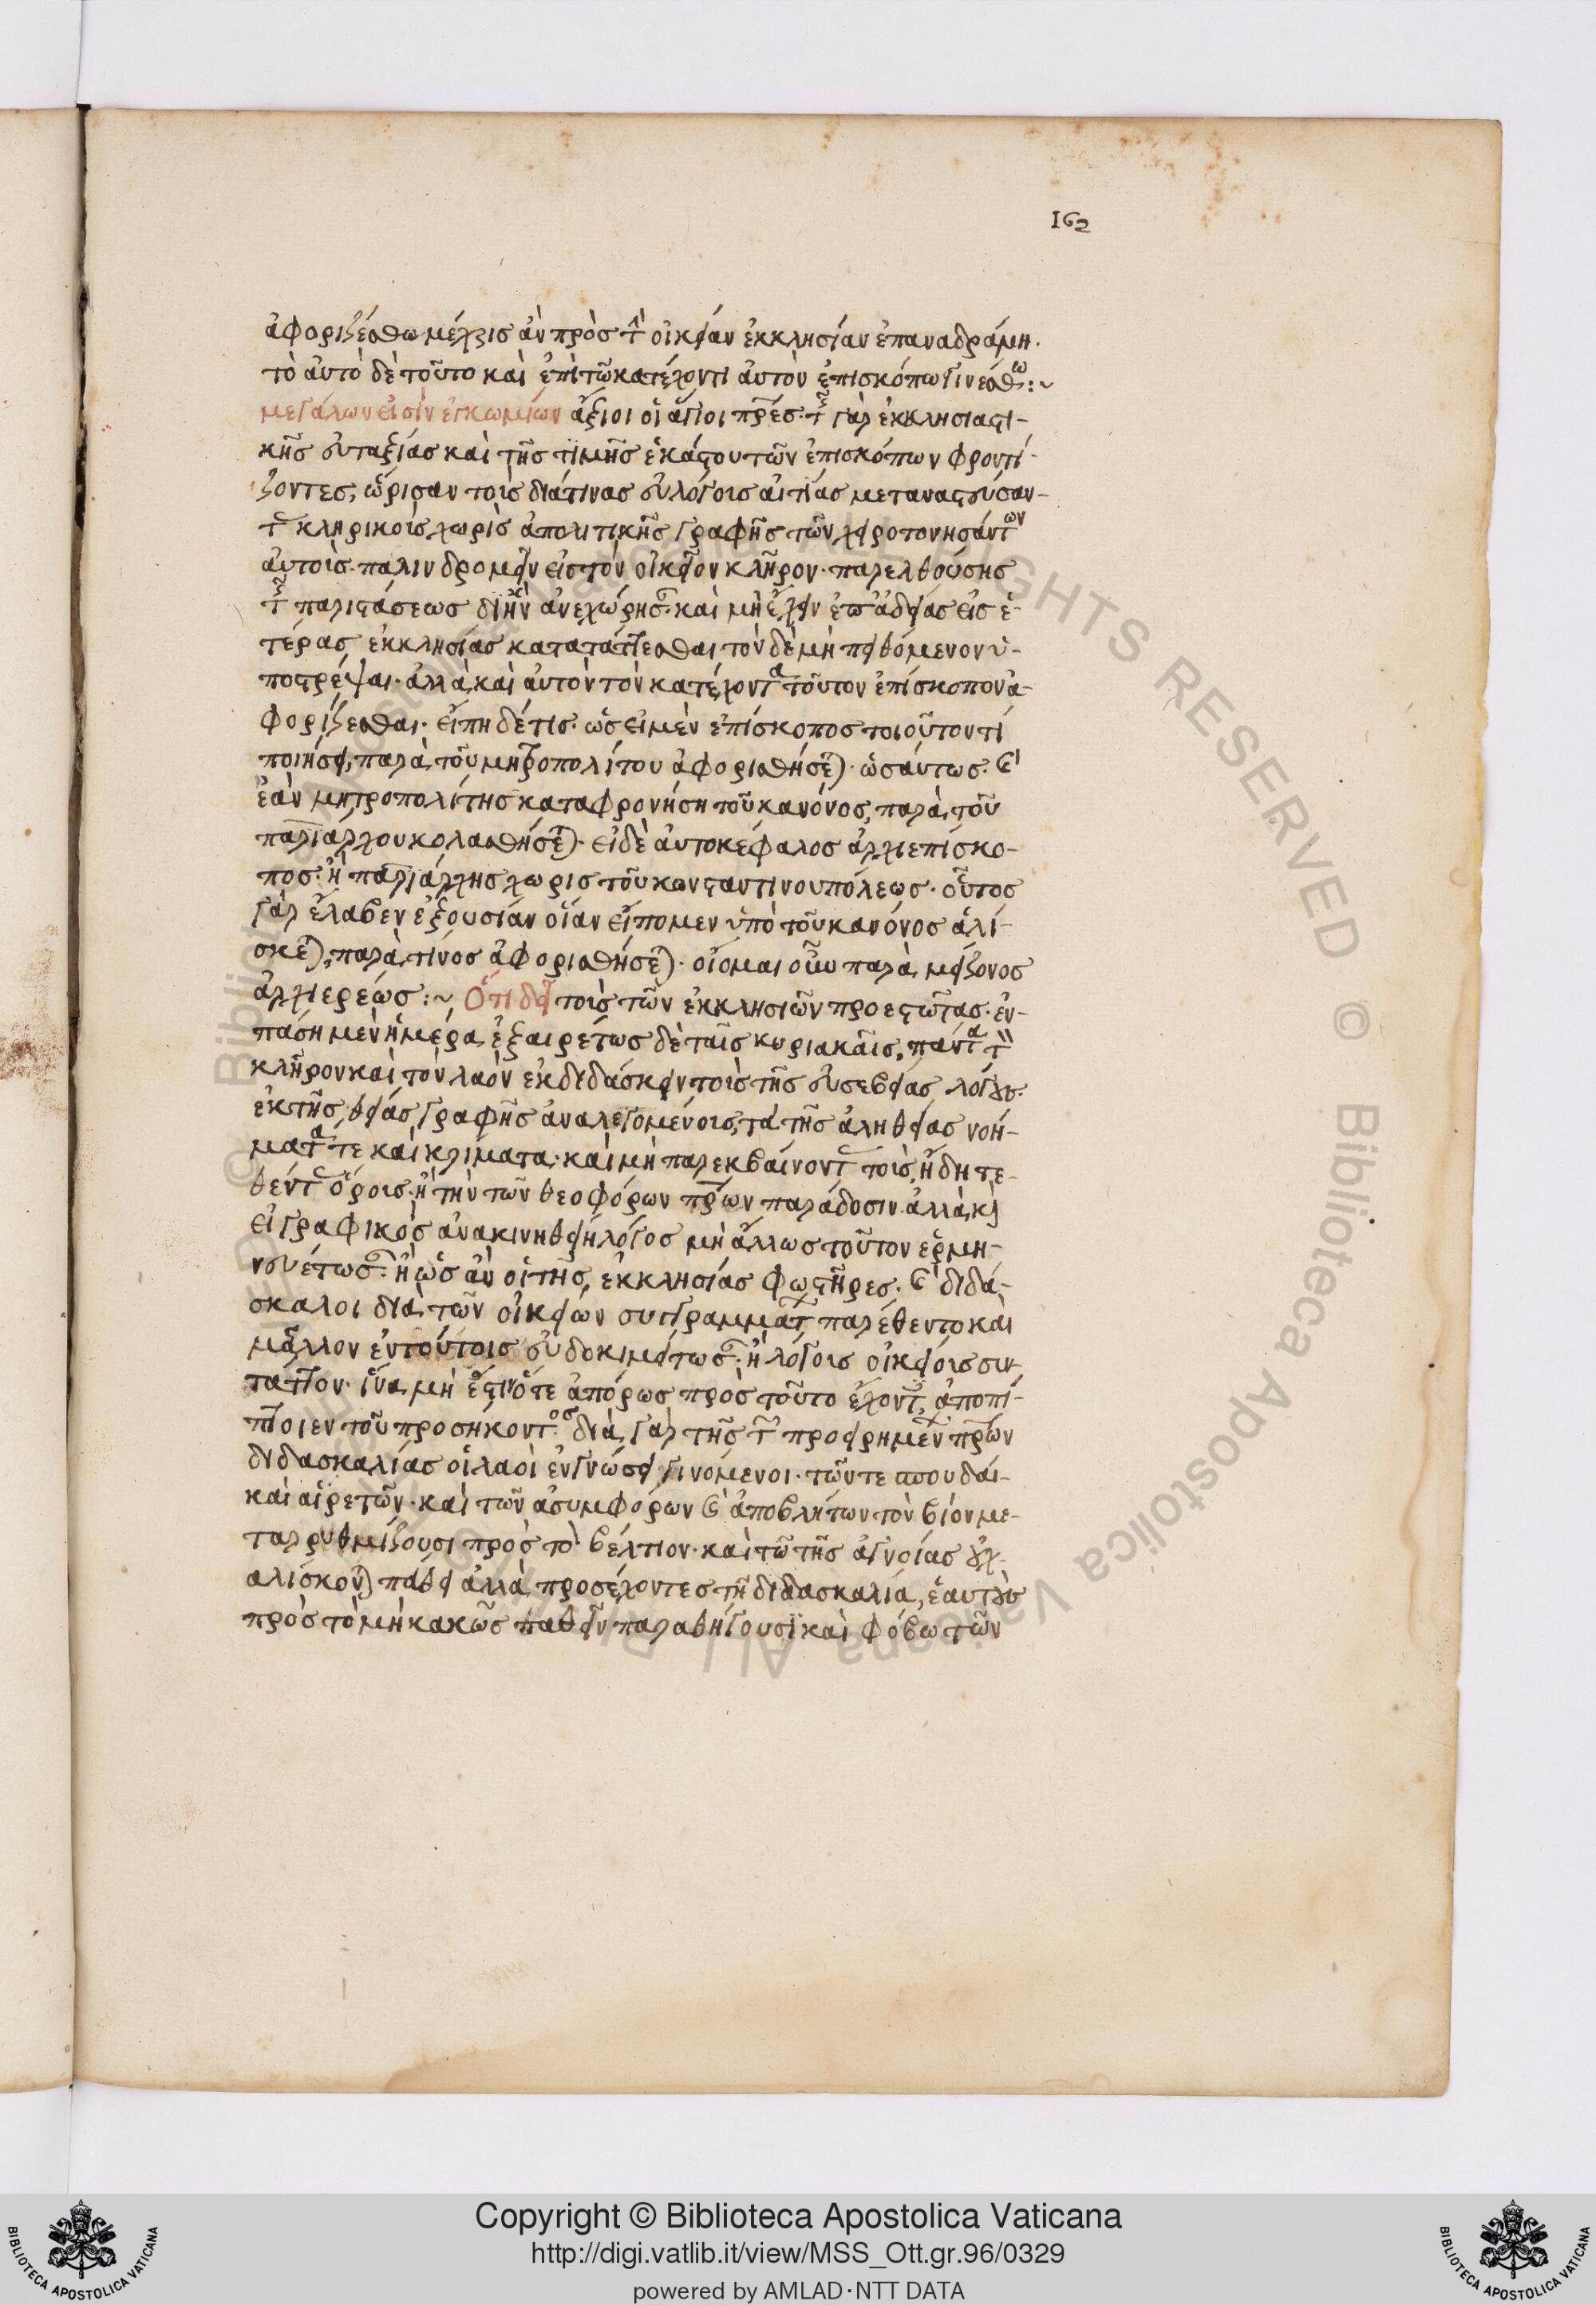 162
ἀφοριζέσθω μέχρις ἂν πρὸς τ̀ οἰκείαν ἐκκλησίαν ἐπαναδράμη·
τὸ αὐτὸ δὲ τοῦτο καὶ ἐπὶ τῶ κατέχοντι αὐτὸν ἐπισκόπω γινέσθω:~
μεγάλων εἰσὶν ἐγκωμίων ἄξιοι οἱ ἅγιοι πρ̅ες· τ῀ γὰρ ἐκκλησιαστι-
κῆς εὐταξίας καὶ τῆς τιμῆς ἑκάστου τῶν ἐπισκόπων φροντί-
ζοντες, ὥρισαν τοῖς διάτινας εὐλόγοις αἰτίας μεταναστεύσαν-
τ῀ κληρικοῖς χωρὶς ἀπολιτικῆς γραφῆς τῶν χειροτονησάντων
αὐτοῖς· παλινδρομεῖν εἰς τὸν οἰκεῖον κλῆρον· παρελθούσης
τ῀ περιστάσεως δι' ἣν ἀνεχώρησ῀· καὶ μὴ ἔχειν ἐπ' ἀδείας εἰς ἑ-
τέρας ἐκκλησίας κατατάττεσθαι τὸν δὲ μὴ πειθόμενον ὑ-
ποστρέψαι· ἀλλὰ καὶ αὐτὸν τὸν κατέχοντα τοῦτον ἐπίσκοπον ἀ-
φορίζεσθαι· εἴπη δέ τις· ὡς εἰ μὲν ἐπίσκοπος τοιοῦτον τί
ποιήσει, παρὰ τοῦ μητροπολίτου ἀφορισθήσε)· ὡσαύτως· ϗ
ἐὰν μητροπολίτης καταφρονήση τοῦ κανόνος, παρὰ τοῦ
πατριάρχου κολασθήσε)· εἰ δὲ αὐτοκέφαλος ἀρχιεπίσκο-
πος· ἢ πατριάρχης χωρὶς τοῦ κωνσταντινουπόλεως· οὗτος
γὰρ ἔλαβεν ἐξουσίαν οἵαν εἴπομεν ὑπὸ τοῦ κανόνος ἁλί-
σκε), παρὰ τίνος ἀφορισθήσε)· οἴομαι οὖν παρὰ μείζονος
ἀρχιερέως:~ Ὅτι δεῖ τοὺς τῶν ἐκκλησιῶν προεστῶτας· ἐν
πάση μὲν ἡμέρα, ἐξαιρέτως δὲ ταῖς κυριακαῖς, πάντα τ̀
κλῆρον καὶ τὸν λαὸν ἐκδιδάσκειν τοὺς τῆς εὐσεβείας λόγȣς·
ἐκ τῆς θείας γραφῆς ἀναλεγομένοις, τὰ τῆς ἀληθείας νοή-
ματα τε καὶ κρίματα· καὶ μὴ παρεκβαίνοντ῀ τοὺς ἤδη τε-
θέντ῀ ὅροις· ἢ τὴν τῶν θεοφόρων πρ̅ων παράδοσιν· ἀλλὰ ϗ
εἰ γραφικὸς ἀνακινηθείη λόγος μὴ ἄλλως τοῦτον ἑρμη-
νευέτωσ῀· ἢ ὡς ἂν οἱ τῆς ἐκκλησίας φωστῆρες· ϗ διδά-
σκαλοι διὰ τῶν οἰκείων συγγραμμάτ῀ παρέθεντο καὶ
μᾶλλον ἐν τούτοις εὐδοκιμείτωσ῀· ἢ λόγοις οἰκείοις συν-
τάττον· ἵνα μὴ ἔστιν ὅτε ἀπόρως πρὸς τοῦτο ἔχοντ῀, ἀποπί-
πτοιεν τοῦ προσήκοντος· διὰ γὰρ τῆς τ῀ προειρημέν῀ πρ̅ων
διδασκαλίας οἱ λαοὶ ἐν γνώσει γινόμενοι· τῶν τε σπουδαί-
καὶ αἱρετῶν· καὶ τῶν ἀσυμφόρων ϗ ἀποβλήτων τὸν βίον με-
ταρρυθμίζουσι πρὸς τὸ βέλτιον· καὶ τῶ τῆς ἀγνοίας ȣχ
ἁλίσκον) πάθει ἀλλὰ προσέχοντες τῆ διδασκαλία, ἑαυτȣς
πρὸς τὸ μὴ κακῶς παθεῖν παραθήγουσι καὶ φόβω τῶν
Copyright © Biblioteca Apostolica Vaticana
http://digi.vatlib.it/view/MSS_Ott.gr.96/0329
powered by AMLAD·NTT DATA